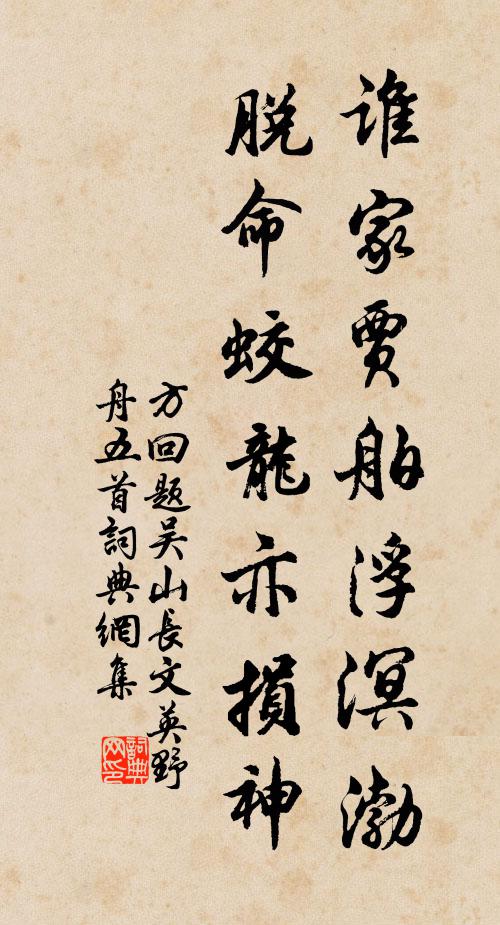 谁家贾舶浮溟渤
脱命蛟龍亦損神
方回題吴山長文英野
舟五首詞典網集
詞典网印